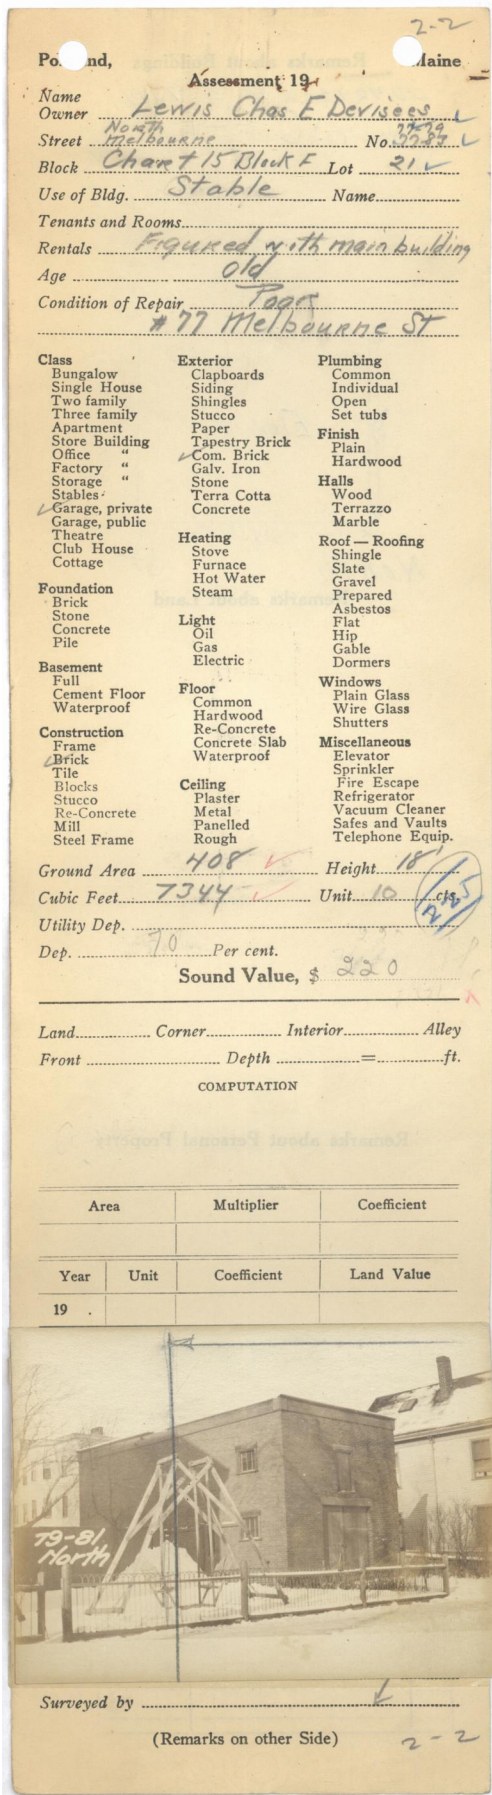 2-2
Po nd, Maine
Assessment 19
Name
Owner Lewis Chas E Devisees
North
Street Melbourne No.
Block Chart 15 Block F Lot 21
Use of Bldg. Stable Name
Tenants and Rooms
Rentals Figured with main building
Age old
Condition of Repair Poor
#77 Melbourne St
Class
Bungalow
Single House
Two family
Three family
Apartment
Store Building
Office "
Factory "
Storage "
Stables
✓ Garage, private
Garage, public
Theatre
Club House
Cottage
Foundation
Brick
Stone
Concrete
Pile
Basement
Full
Cement Floor
Waterproof
Construction
Frame
✓ Brick
Tile
Blocks
Stucco
Re-Concrete
Mill
Steel Frame
Exterior
Clapboards
Siding
Shingles
Stucco
Paper
Tapestry Brick
✓ Com. Brick
Galv. Iron
Stone
Terra Cotta
Concrete
Heating
Stove
Furnace
Hot Water
Steam
Light
Oil
Gas
Electric
Floor
Common
Hardwood
Re-Concrete
Concrete Slab
Waterproof
Ceiling
Plaster
Metal
Panelled
Rough
Plumbing
Common
Individual
Open
Set tubs
Finish
Plain
Hardwood
Halls
Wood
Terrazzo
Marble
Roof — Roofing
Shingle
Slate
Gravel
Prepared
Asbestos
Flat
Hip
Gable
Dormers
Windows
Plain Glass
Wire Glass
Shutters
Miscellaneous
Elevator
Sprinkler
Fire Escape
Refrigerator
Vacuum Cleaner
Safes and Vaults
Telephone Equip.
Ground Area 408 Height 18'
Cubic Feet 7344 Unit 10 cts.
225
Utility Dep.
Dep. 70 Per cent.
Sound Value, $ 220
Land Corner Interior Alley
Front Depth = ft.
COMPUTATION
Area Multiplier Coefficient
Year Unit Coefficient Land Value
19 .
79-81
North
Surveyed by
(Remarks on other Side)
2-2